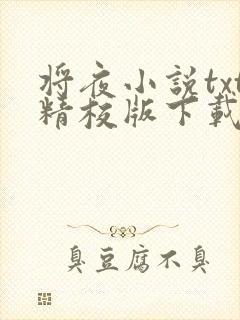 将夜小説txt
精校版下載
臭豆腐不臭